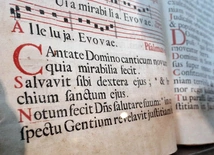 ra mirabilia, Evovae.
Alleluja. Evovae.
Psalmus
Cantate Domino canticum novum
quia mirabilia fecit.
Salvavit sibi dextera ejus; * &
chium sanctum ejus.
Notum fecit Dñs salutare suum,
spectu Gentium revelavit justitiam